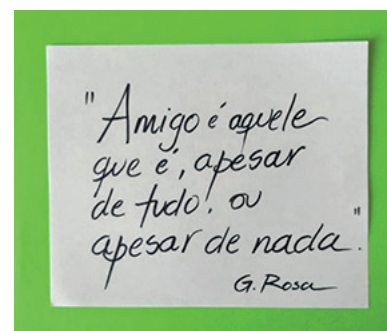 "Amigo é aquele
que é, apesar
de tudo! ou
apesar de nada".
G. Rosa